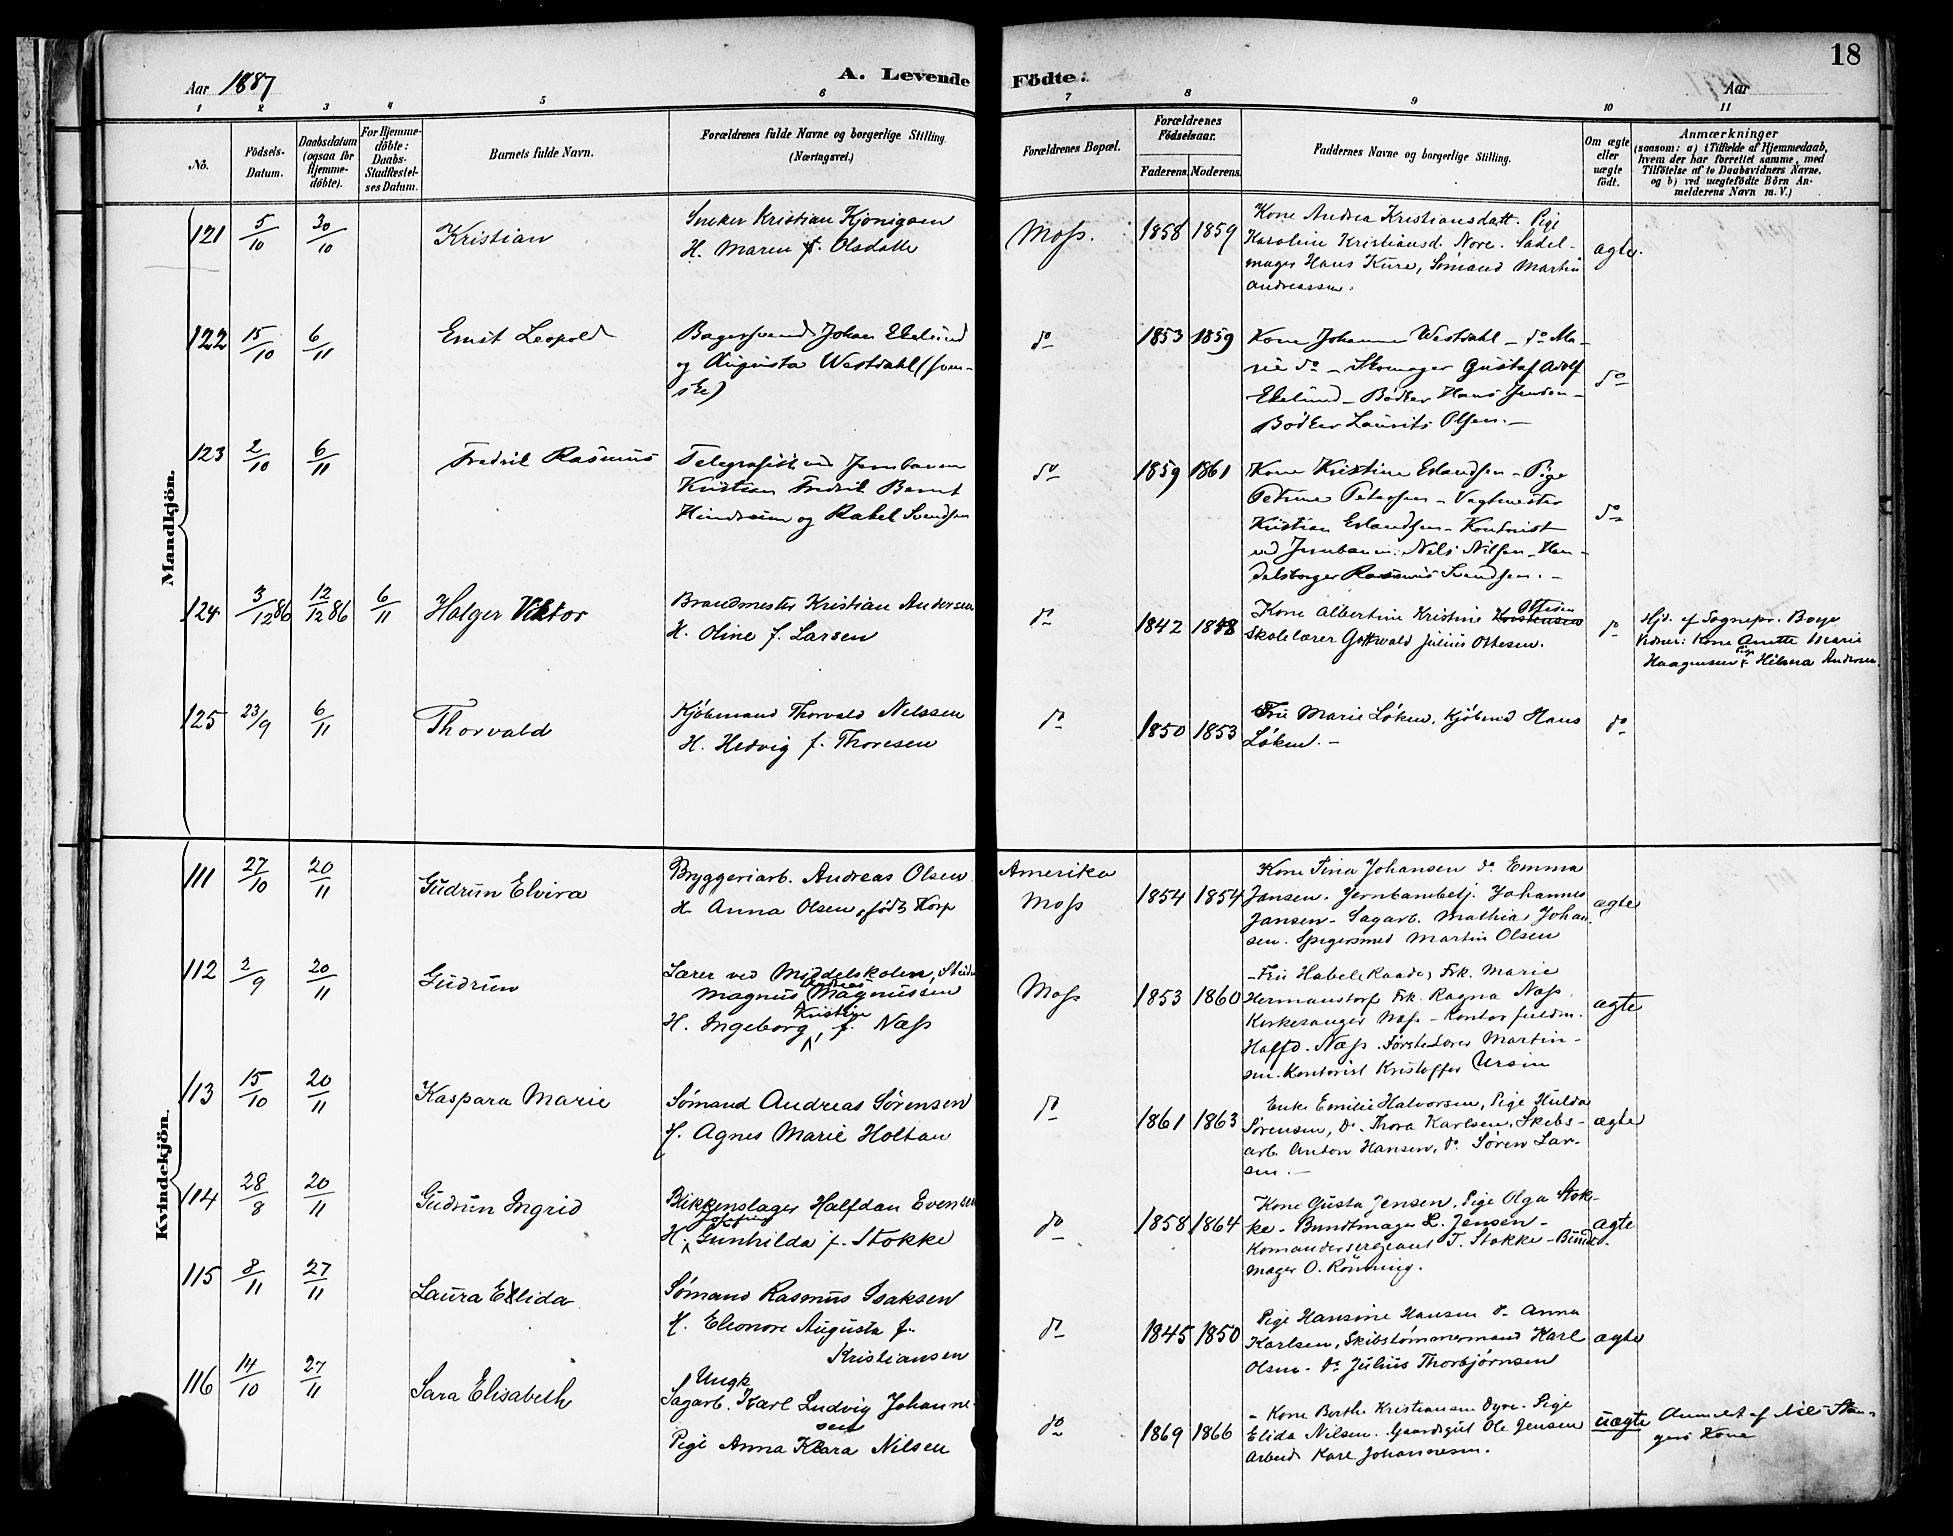 18
Aar 1887
A. Levende Födte.
Aar
1 2 3 4 5 6 7 8 9 10 11
Nô.
Födsels-Datum.
Daabsdatum (ogsaa for Hjemme-döbte).
For Hjemme-döbte: Daabs-Stadfæstel-ses Datum.
Barnets fulde Navn.
Forældrenes fulde Navne og borgerlige Stilling.
(Næringsvei.)
Forældrenes Bopæl.
Forældrenes Födselsaar.
Faderens. Moderens.
Faddernes Navne og borgerlige Stilling.
Om ægte eller uægte födt.
Anmærkninger
(saasom: a) i Tilfælde af Hjemmedaab,
hvem der har forrettet samme, med
Tilföielse af to Daabsvidners Navne,
og b) ved uægtefödte Börn An-
melderens Navn m. V.)
Mandkjön.
121 5/10 30/10 Kristian
Sneker Kristian Kjönigsen
H. Maren f. Olsdatte
Moss. 1858 1859
Kone Andrea Kristiansdatt. Pige
Karoline Kristiansd. Nore. Sadel-
mager Hans Kure, Sömand Martin
Andreassen.
ægte.
122 15/10 6/11 Ernst Leopold
Bagersvend Johan Ekelund
og Augusta Westdahl (sven-
ske)
do 1853 1859
Kone Johanne Westdahl - do Ma-
rie do - Skomager Gustaf Adolf
Ekelund - Bödker Hans Jensen -
Bödker Laurits Olsen. -
do
123 2/10 6/11 Fredrik Rasmus
Telegrafist ved Jernbanen
Kristian Fredrik Bernt
Hindrum og Rakel Svendsen
do 1859 1861
Kone Kristine Erlandsen - Pige
Petrine Petersen - Vagtmester
Kristian Erlandsen - Kontorist
ved Jernbanen. Nels Nilsen - Han-
delsborger Rasmus Svendsen. -
do
124 3/12 86 12/12 86 6/11 Holger Viktor
Brandmester Kristian Andersen
H. Oline f. Larsen
do 1842 1848
Kone Albertine Kristine Ottesen
Skolelærer Gottwald Julius Ottesen.
do
Hjd. af Sognepr. Boye
Vidner: Kone Anette Marie
Haagensen, Pige Hilma Andersen
125 23/9 6/11 Thorvald
Kjöbmand Thorvald Nelssen
H. Hedvig f. Thoresen
do 1850 1853
Fru Marie Löken, Kjöbmd Hans
Löken. -
do
Kvindekjön.
111 27/10 20/11 Gudrun Elvira
Bryggeriarb. Andreas Olsen
H. Anna Olsen, födt Korp
Amerika
Moss 1854 1854
Kone Tina Johansen do Emma
Jansen. Jernbanebetj. Johannes
Jansen - Sagarb. Mathias Johan-
sen. Spigersmed Martin Olsen
ægte
112 2/9 20/11 Gudrun
Lærer ved Middelskolen, Stud.
Magnus Andreas Magnussen
H. Ingeborg Kristine f. Næss
Moss 1853 1860
- Fru Habele Raade, Frk. Marie
Hermanstorf Frk. Ragna Næss
Kirkesanger Næss - Kontorfuldm.
Haffd. Næss. Förstelærer Martin-
sen. Kontorist Kristoffer Ursin
ægte
113 15/10 20/11 Kaspara Marie
Sömand Andreas Sörensen
H. Agnes Marie Holtan
do 1861 1863
Enke Emilie Halvorsen, Pige Hulda
Sörensen, do. Thora Karlsen, Skibs-
arb. Anton Hansen, do Sören Lar-
sen. -
ægte
114 28/8 20/11 Gudrun Ingrid
Blikkenslager Halfdan Evensen
H. Josefine Gunhilda f. Stokke
do 1858 1864
Kone Gusta Jensen, Pige Olga Stok-
ke - Bundtmager L. Jensen -
Komandersergeant T. Stokke - Bundt-
mager O. Rönning.
ægte
115 8/11 27/11 Laura Elida
Sömand Rasmus Isaksen
H. Eleonore Augusta f.
Kristiansen
do 1845 1850
Pige Hansine Hansen do Anna
Karlsen, Skibstömmermand Karl
Olsen - do Julius Thorbjörnsen
ægte
116 14/10 27/11 Sara Elisabeth
Ungk.
Sagarb. Karl Ludvig Johanne-
sen
Pige Anna Klara Nilsen
do 1869 1866
- Kone Berthe Kristiansen Dyre. Pige
Elida Nilsen. Gaardsgut Ole Jensen
Arbeid. Karl Johannesen.
uægte
Anmeldt af Nils Stan-
gers Kone